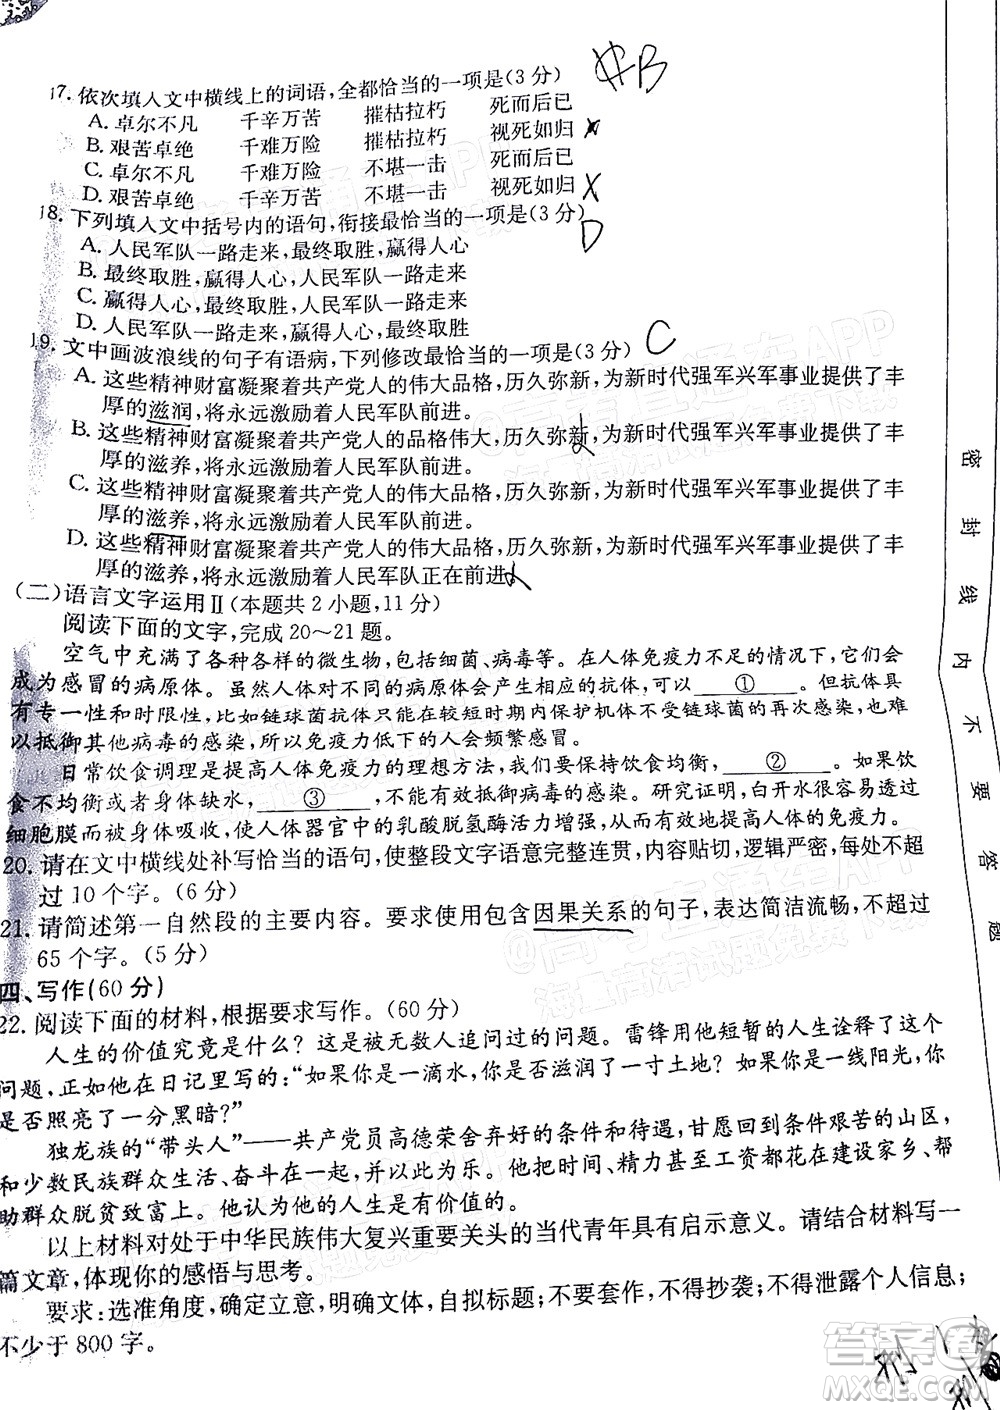 17. 依次填入文中横线上的词语,全都恰当的一项是(3 分) B
A. 卓尔不凡 千辛万苦 摧枯拉朽 死而后已
B. 艰苦卓绝 千难万险 摧枯拉朽 视死如归
C. 卓尔不凡 千难万险 不堪一击 死而后已
D. 艰苦卓绝 千辛万苦 不堪一击 视死如归 X
18. 下列填入文中括号内的语句,衔接最恰当的一项是(3 分) D
A. 人民军队一路走来,最终取胜,赢得人心
B. 最终取胜,赢得人心,人民军队一路走来
C. 赢得人心,最终取胜,人民军队一路走来
D. 人民军队一路走来,赢得人心,最终取胜
19. 文中画波浪线的句子有语病,下列修改最恰当的一项是(3 分) C
A. 这些精神财富凝聚着共产党人的伟大品格,历久弥新,为新时代强军兴军事业提供了丰
厚的滋润,将永远激励着人民军队前进。
B. 这些精神财富凝聚着共产党人的品格伟大,历久弥新,为新时代强军兴军事业提供了丰
厚的滋养,将永远激励着人民军队前进。
C. 这些精神财富凝聚着共产党人的伟大品格,历久弥新,为新时代强军兴军事业提供了丰
厚的滋养,将永远激励着人民军队前进。
D. 这些精神财富凝聚着共产党人的伟大品格,历久弥新,为新时代强军兴军事业提供了丰
厚的滋养,将永远激励着人民军队正在前进。
(二)语言文字运用Ⅱ(本题共 2 小题,11 分)
阅读下面的文字,完成 20～21 题。
空气中充满了各种各样的微生物,包括细菌、病毒等。在人体免疫力不足的情况下,它们
成为感冒的病原体。虽然人体对不同的病原体会产生相应的抗体,可以 ① 。但抗体具
有专一性和时限性,比如链球菌抗体只能在较短时期内保护机体不受链球菌的再次感染,难
以抵御其他病毒的感染,所以免疫力低下的人会频繁感冒。
日常饮食调理是提高人体免疫力的理想方法,所以要保持饮食均衡, ② 。如果饮
食不均衡或者身体缺水, ③ ,不能有效抵御病毒的感染。研究证明,白开水容易透过
细胞膜而被身体吸收,使人体器官中的乳酸脱氢酶活力增强,从而有效提高人体的免疫力。
20. 请在文中横线处补写恰当的语句,使整段文字语意完整连贯,内容贴切,逻辑严密,每处不超
过 10 个字。(6 分)
21. 请简述第一自然段的主要内容。要求使用包含因果关系的句子,表达简洁流畅,不超过
65 个字。(5 分)
四、写作(60 分)
22. 阅读下面的材料,根据要求写作。(60 分)
人生的价值究竟是什么? 这是被无数人追问过的问题。雷锋用他短暂的人生诠释了这个
问题,正如他在日记里写的:“如果你是一滴水,你是否滋润了一寸土地? 如果你是一线阳光,你
是否照亮了一分黑暗?”
独龙族的“带头人”——共产党员高德荣舍弃好的条件和待遇,甘愿回到条件艰苦的山区,
和少数民族群众生活、奋斗在一起,并以此为乐。他把时间、精力甚至工资都花在建设家乡、帮
助群众脱贫致富上。他认为他的人生是有价值的。
以上材料对处于中华民族伟大复兴重要关头的当代青年具有启示意义。请结合材料写一
篇文章,体现你的感悟与思考。
要求:选准角度,确定立意,明确文体,自拟标题;不要套作,不得抄袭;不得泄露个人信息;
不少于 800 字。
密 封 线 内 不 要 答 题
答案圈
MXQE.COM